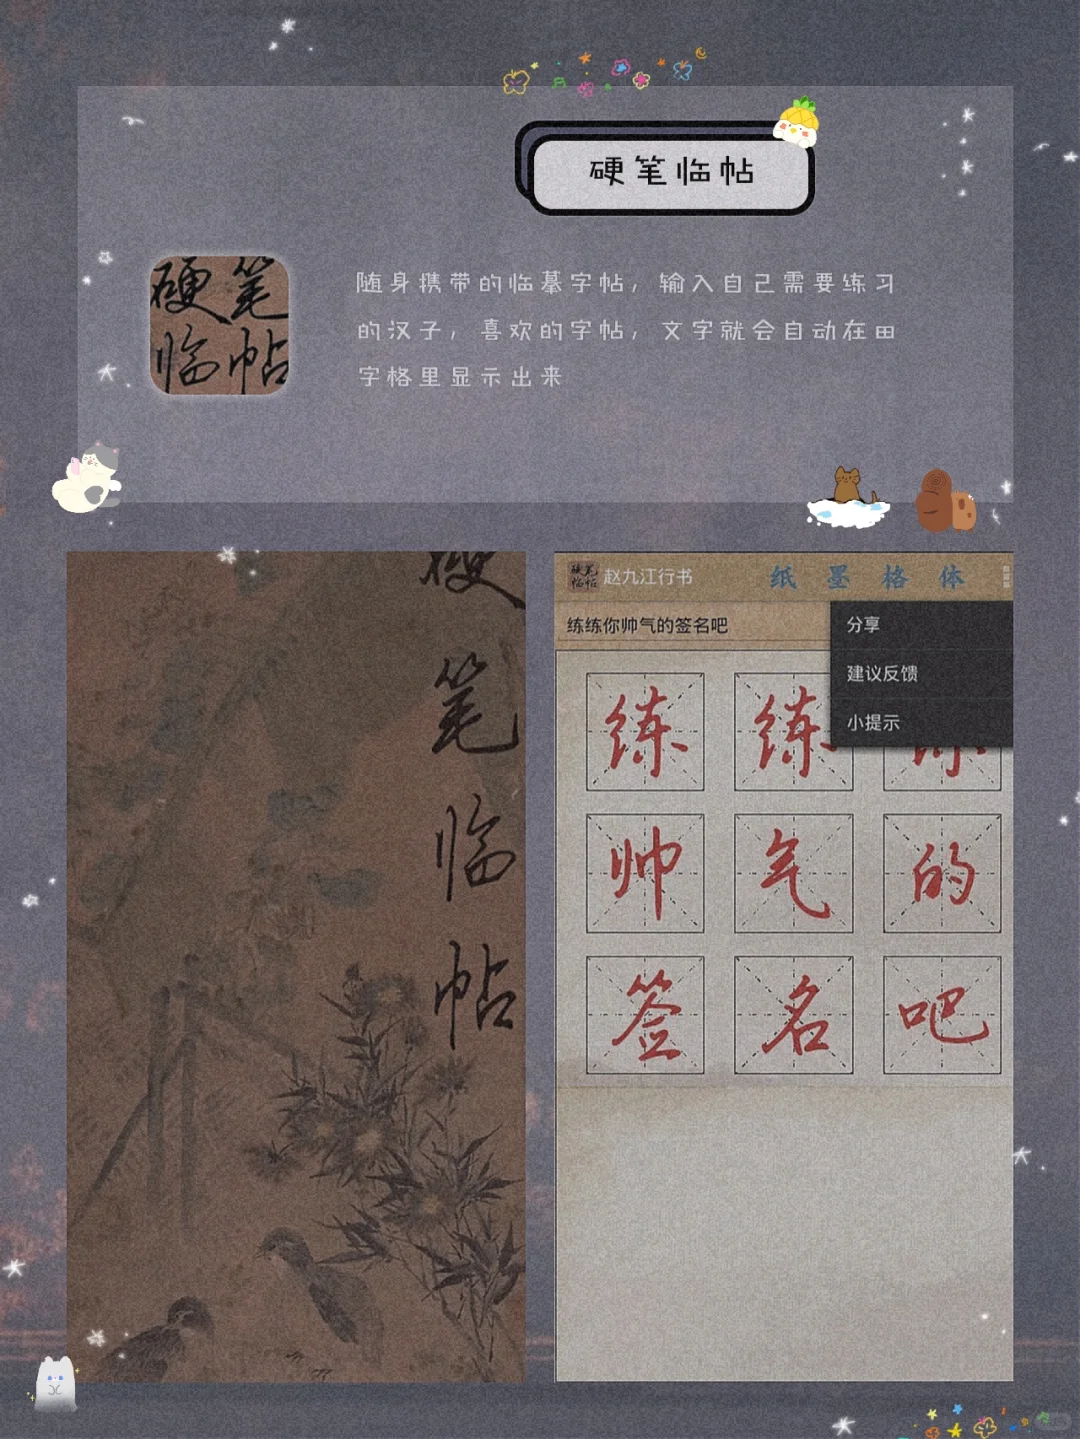 硬笔临帖
硬笔
临帖
随身携带的临摹字帖，输入自己需要练习
的汉子，喜欢的字帖，文字就会自动在田
字格里显示出来
硬
笔
临
帖
硬笔
临帖
赵九江行书
纸 墨 格 体
练练你帅气的签名吧
分享
建议反馈
小提示
练 练 你
帅 气 的
签 名 吧